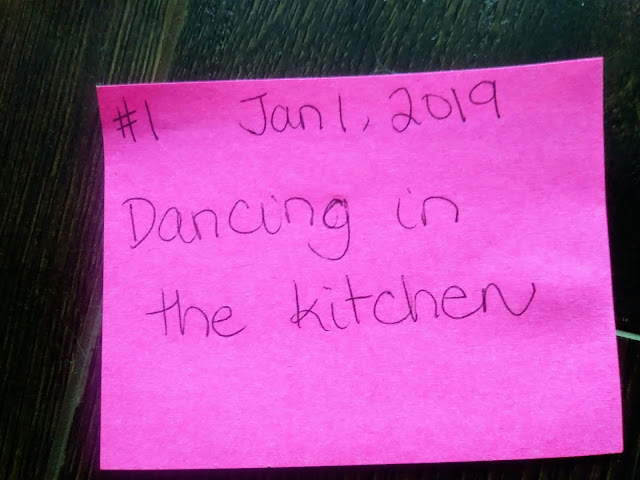 #1 Jan 1, 2019
Dancing in
the kitchen